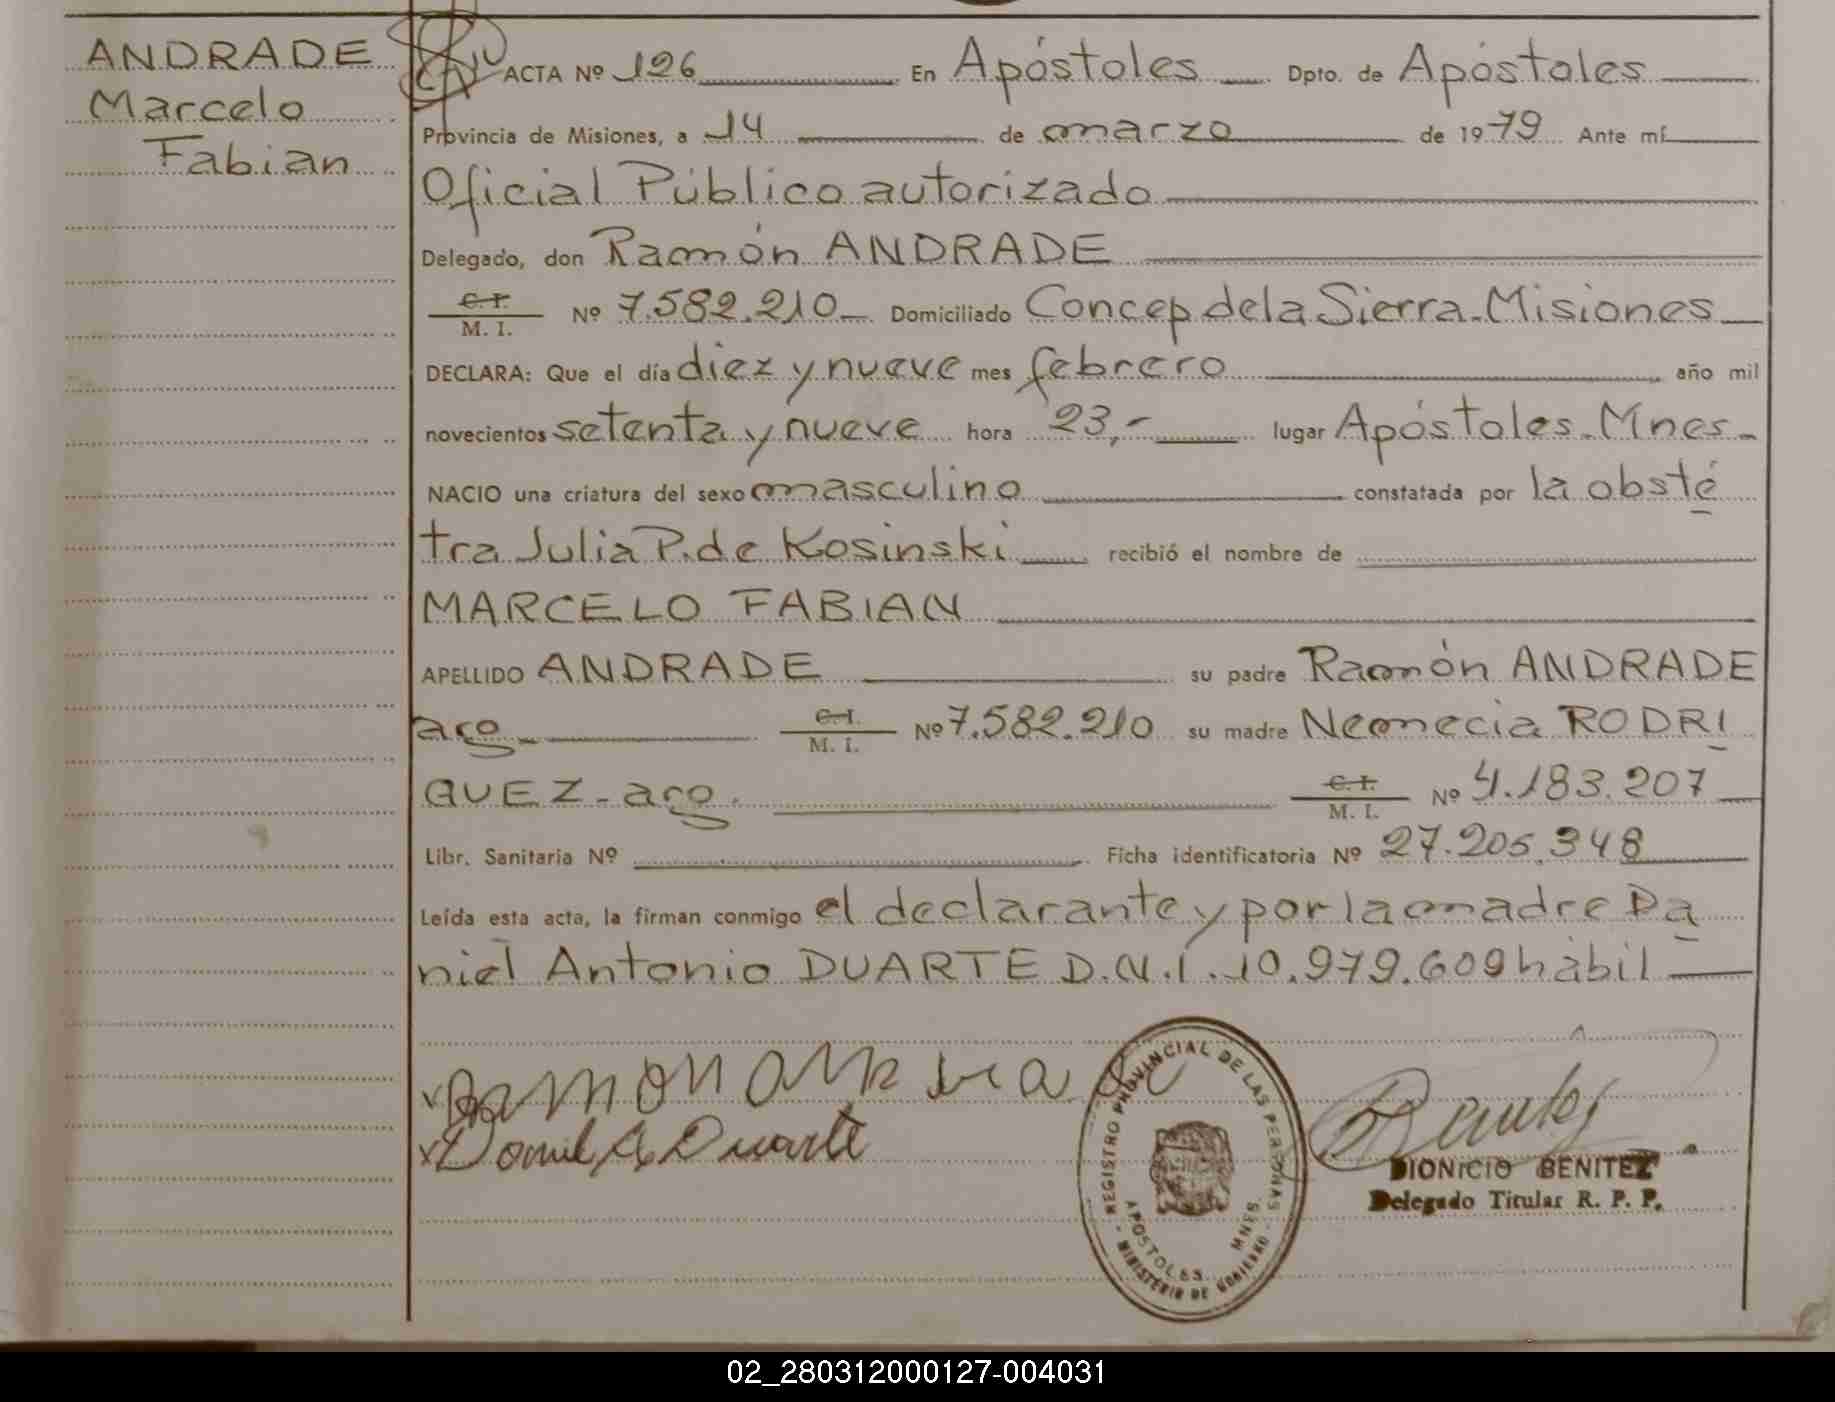 ANDRADE
Marcelo
Fabian
ACTA Nº 126 En Apóstoles Dpto. de Apóstoles
Provincia de Misiones, a 14 de marzo de 1979 Ante mí
Oficial Público autorizado
Delegado, don Ramón ANDRADE
C. I.
M. I. Nº 7.582.210 Domiciliado Concep de la Sierra-Misiones
DECLARA: Que el día diez y nueve mes febrero año mil
novecientos setenta y nueve hora 23,- lugar Apóstoles-Mnes-
NACIO una criatura del sexo masculino constatada por la obsté
tra Julia P. de Kosinski recibió el nombre de
MARCELO FABIAN
APELLIDO ANDRADE su padre Ramón ANDRADE
arg- C. I.
M. I. Nº 7.582.210 su madre Nemecia RODRI
GUEZ-arg. C. I.
M. I. Nº 4.183.207
Libr. Sanitaria Nº Ficha identificatoria Nº 27.205.348
Leída esta acta, la firman conmigo el declarante y por la madre Da
niel Antonio DUARTE D.N.I. 10.979.609 hábil
Daniel A Duarte
REGISTRO PROVINCIAL DE LAS PERSONAS
APOSTOLES MNES.
MINISTERIO DE GOBIERNO
DIONICIO BENITEZ
Delegado Titular R. P. P.
02_280312000127-004031